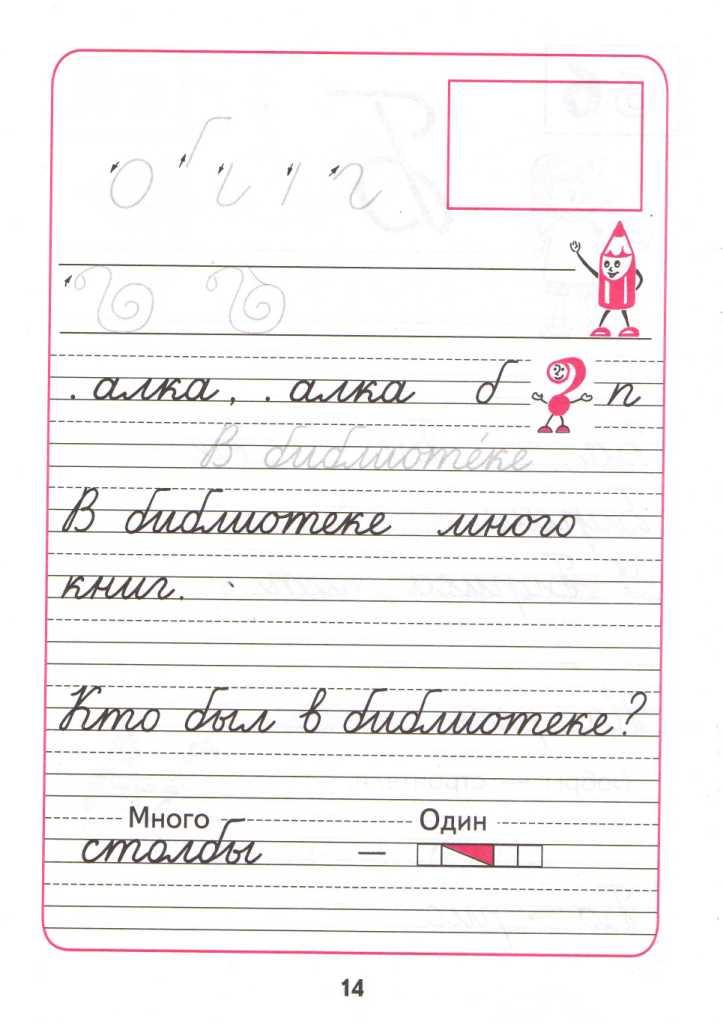 . алка, . алка б ? п
В библиоте́ке
В библиотеке много
книг.
Кто был в библиотеке?
Много Один
столбы —
14